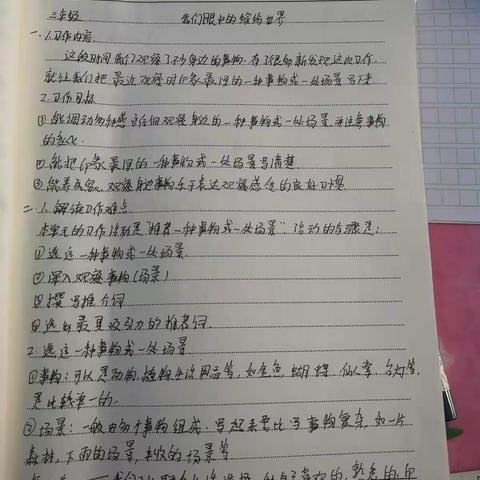 三年级 我们眼中的缤纷世界
一、1.习作内容
这段时间我们观察了不少身边的事物，有了很多新发现这次习作，
就让我们把最近观察时印象最深的一种事物或一处场景写下来
2.习作目标
①能调动多种感官仔细观察身边的一种事物或一处场景，并注意事物
的变化.
②能把印象最深的一种事物或一处场景写清楚
③能养成留心观察身边事物乐于表达观察感受的良好习惯
二、1.解读习作难点
本单元的习作活动是“推荐一种事物或一处场景”.活动的步骤是:
①选定一种事物或一处场景
②深入观察事物(场景)
③撰写推介词
④选出最具吸引力的推荐词.
2.选定一种事物或一处场景
①事物:可以是动物,植物生活用品等,如金鱼,蝴蝶,仙人掌,台灯等,
是比较单一的.
②场景:一般由多个事物组成.写起来要比写事物复杂,如一片
森林,下雨的场景,丰收的场景等